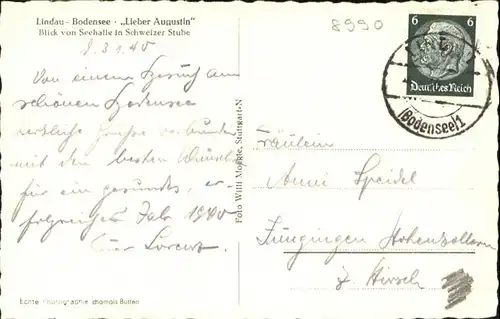 Lindau - Bodensee · „Lieber Augustin"
Blick von Seehalle in Schweizer Stube
8990
6 6
Deutsches Reich
(Bodensee)1
Von einem Besuch am
schönen Bodensee
herzliche Grüsse verbunden
mit den besten Wünschen
für ein gesundes, er-
folgreiches Jahr 1940
Foto Willi Moegle, Stuttgart-N
Fräulein
Anni Speidel
Jungingen Hohenzollern
z. Hirsch
Echte Photographie chamois Bütten